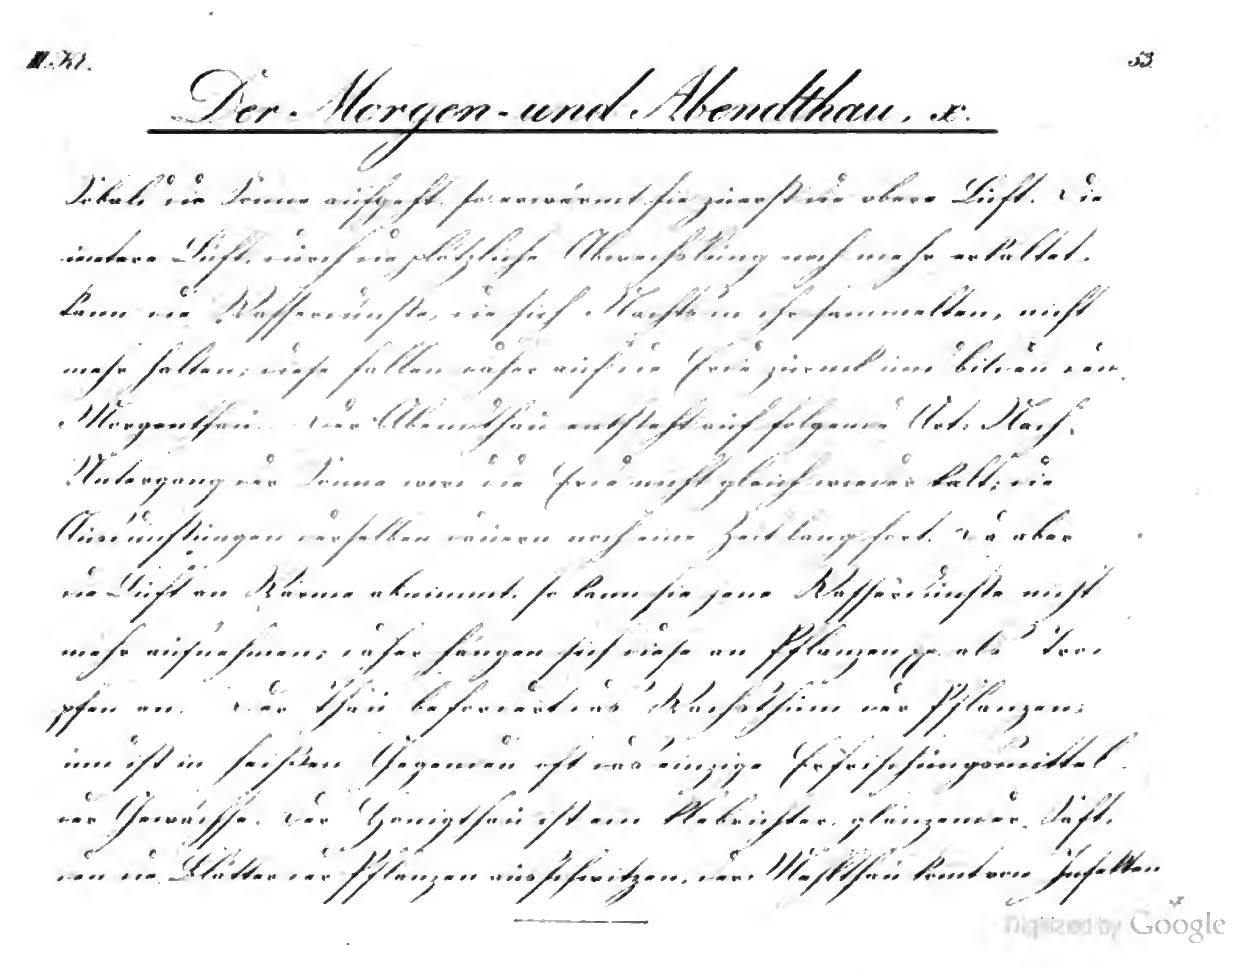 III. Kl. 53.
Der Morgen- und Abendthau, x.
Sobald die Sonne aufgeht, so erwärmt sie zuerst die obere Luft. Die
untere Luft, durch die plötzliche Abwechslung noch mehr erkaltet,
kann die Wasserdünste, die sich Nachts in ihr sammelten, nicht
mehr halten; diese fallen daher auf die Erde zurück und bilden den
Morgenthau. Der Abendthau entsteht auf folgende Art: Nach
Untergang der Sonne wird die Erde nicht gleich wieder kalt; die
Ausdünstungen derselben dauern noch eine Zeit lang fort. Da aber
die Luft an Wärme abnimmt, so kann sie jene Wasserdünste nicht
mehr aufnehmen; daher hängen sich diese an Pflanzen als Tro-
pfen an. Der Thau befördert das Wachsthum der Pflanzen,
und ist in heißen Gegenden oft das einzige Erfrischungsmittel
der Gewächse. Der Honigthau ist ein klebrichter, glänzender Saft,
den die Blätter der Pflanzen ausschwitzen, der Mehlthau komt von Insekten
Digitized by Google